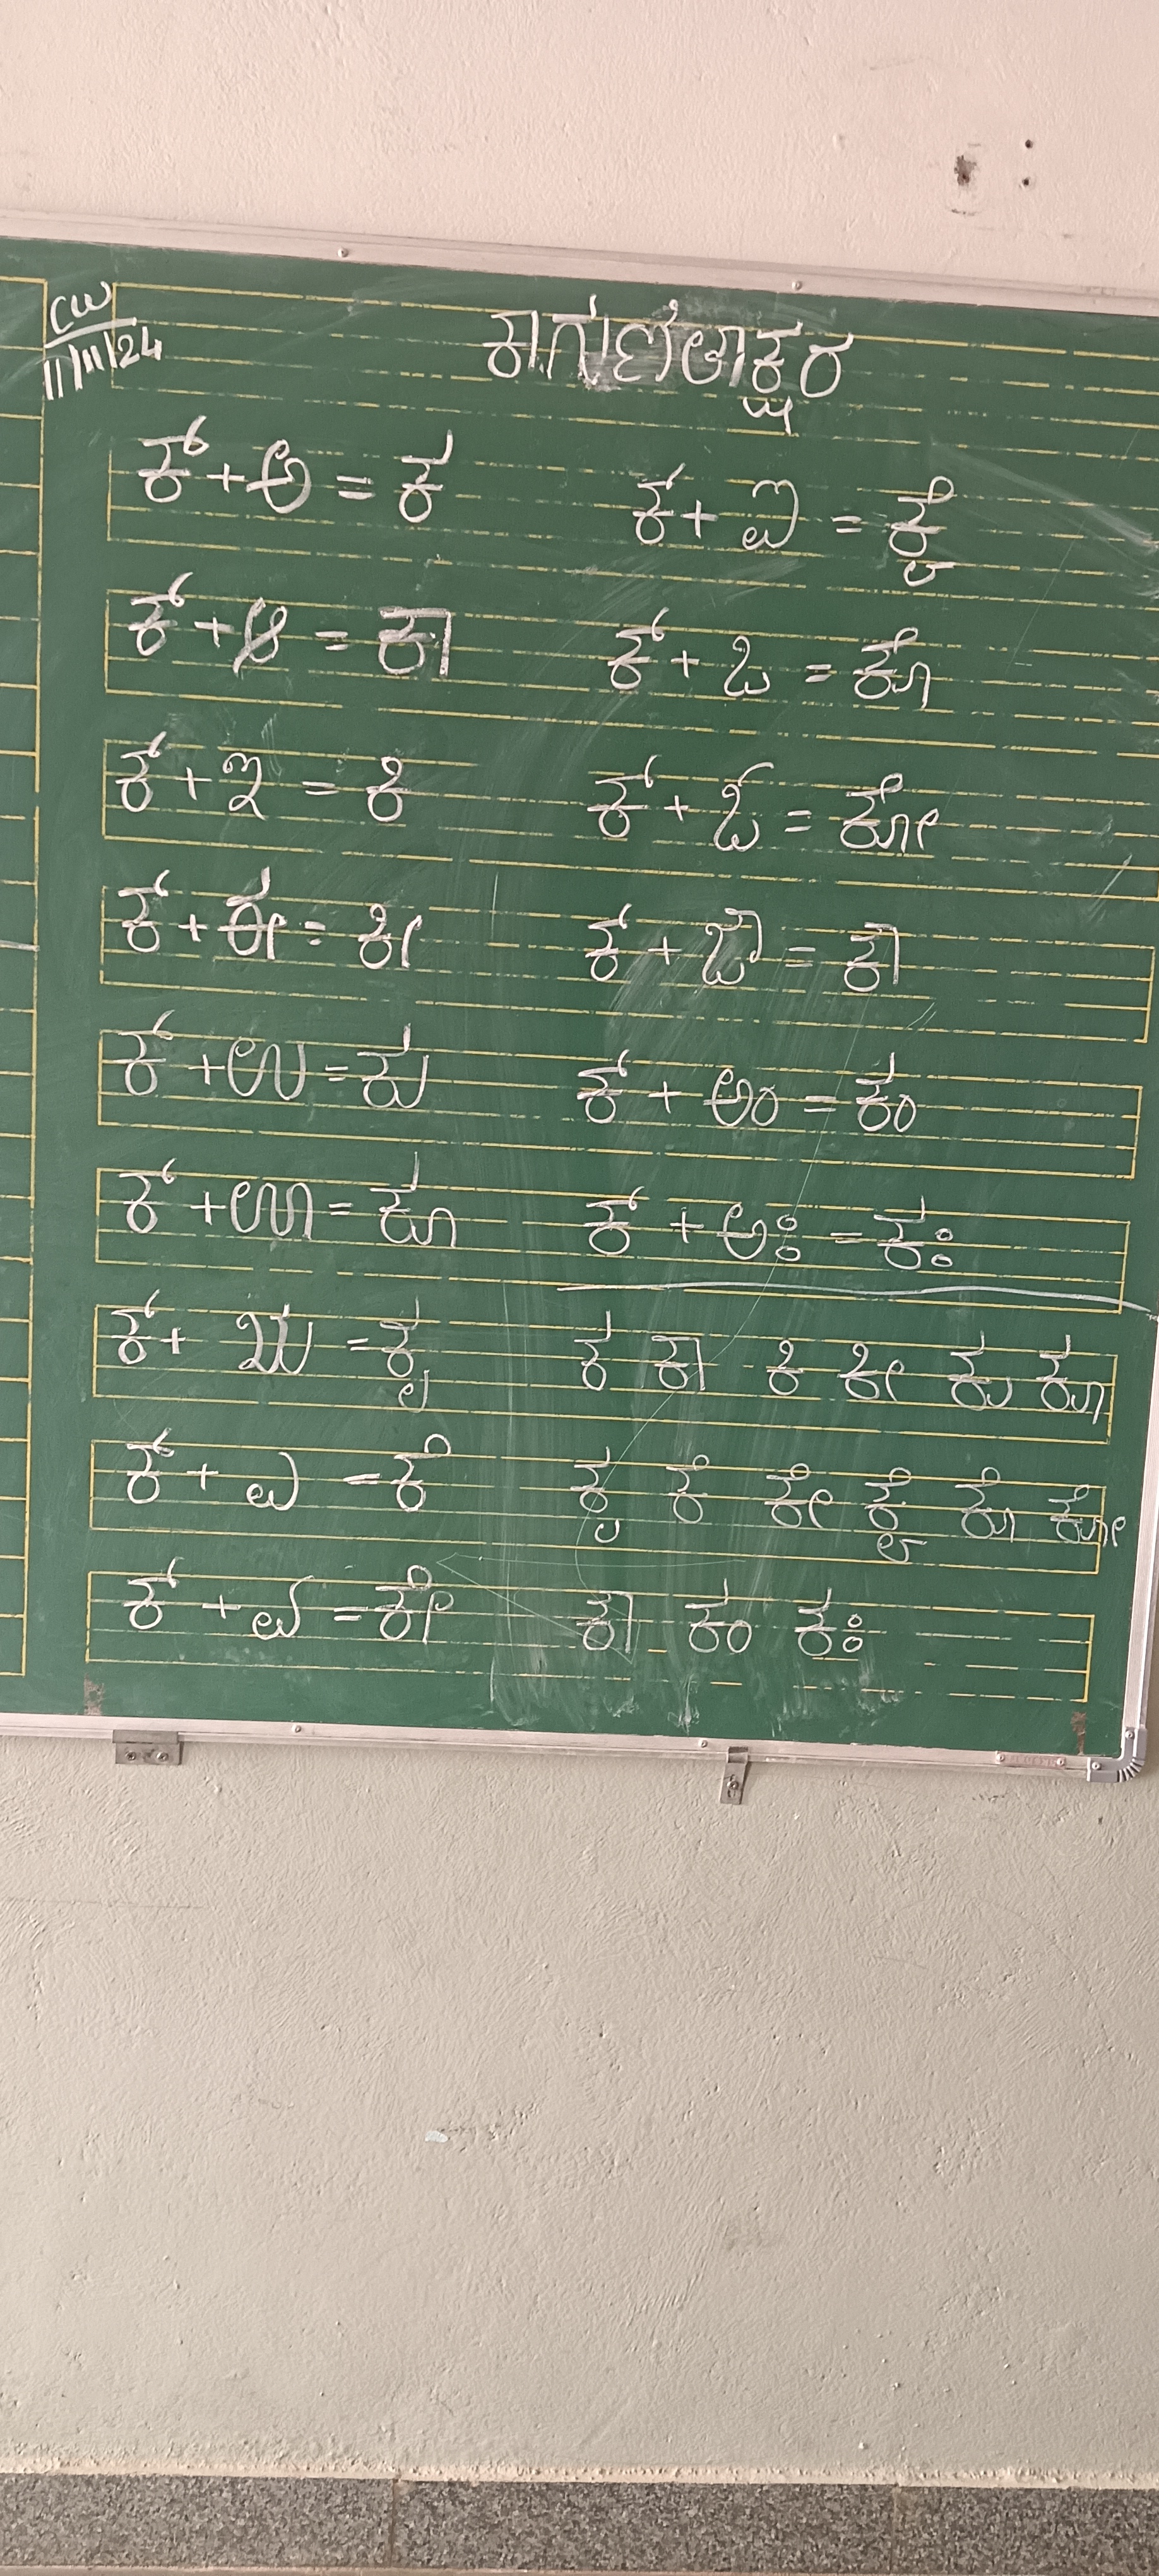 CW
11/11/24
ಕಾಗುಣಿತಾಕ್ಷರ
ಕ್ + ಅ = ಕ
ಕ್ + ಆ = ಕಾ
ಕ್ + ಇ = ಕಿ
ಕ್ + ಈ = ಕೀ
ಕ್ + ಉ = ಕು
ಕ್ + ಊ = ಕೂ
ಕ್ + ಋ = ಕೃ
ಕ್ + ಎ = ಕೆ
ಕ್ + ಏ = ಕೇ
ಕ್ + ಐ = ಕೈ
ಕ್ + ಒ = ಕೊ
ಕ್ + ಓ = ಕೋ
ಕ್ + ಔ = ಕೌ
ಕ್ + ಅಂ = ಕಂ
ಕ್ + ಅಃ = ಕಃ
ಕ ಕಾ ಕಿ ಕೀ ಕು ಕೂ
ಕೃ ಕೆ ಕೇ ಕೈ ಕೊ ಕೋ
ಕೌ ಕಂ ಕಃ